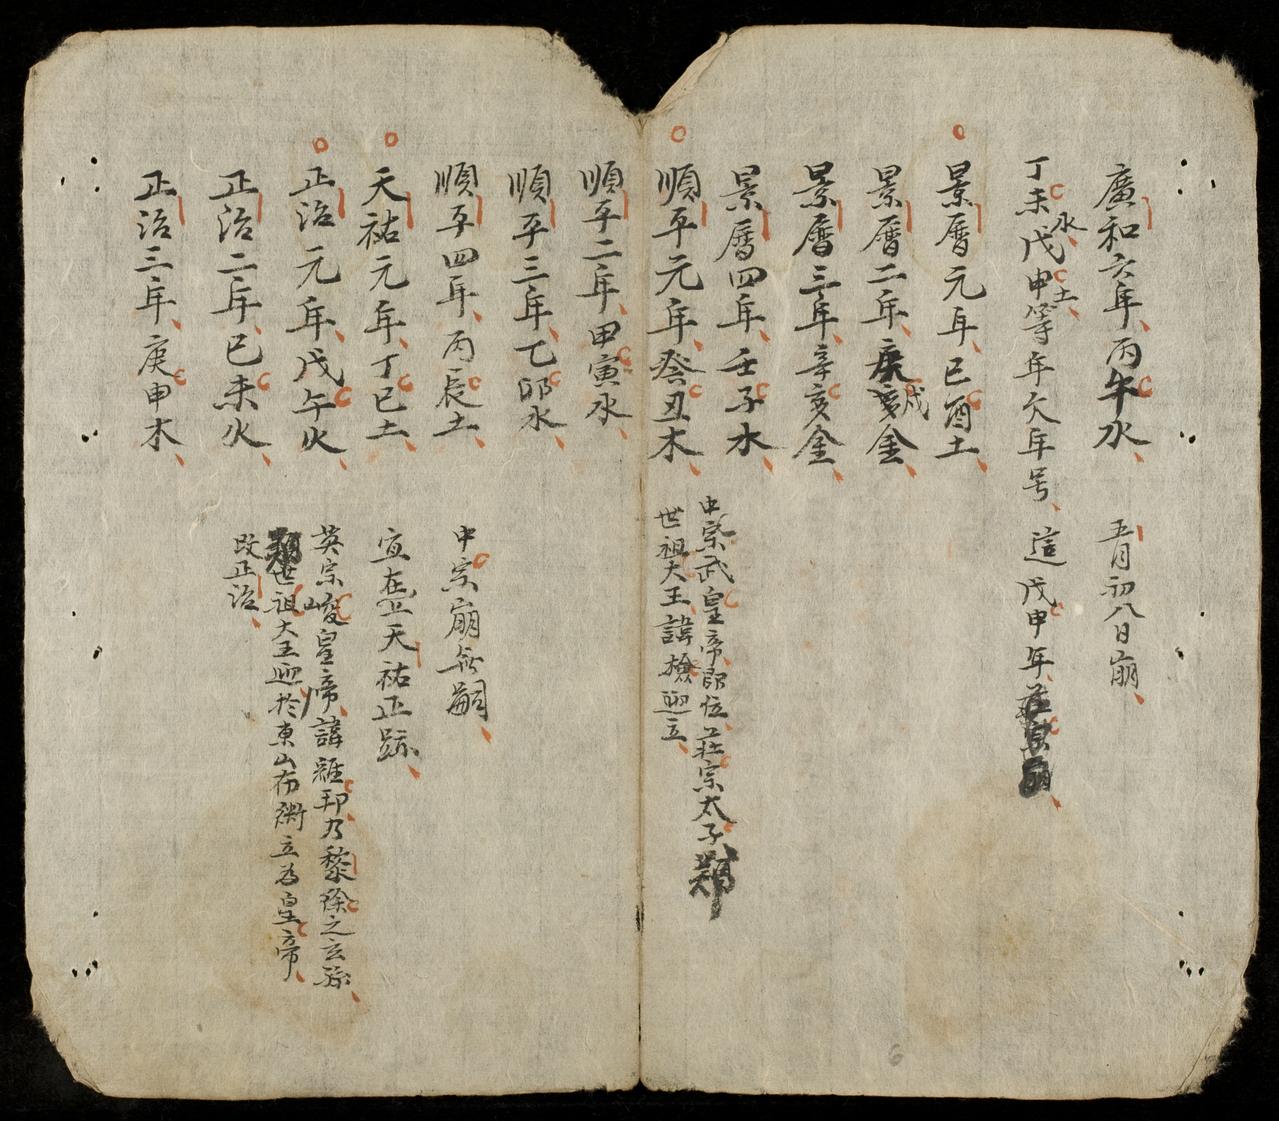 廣和六年丙午水 五月初八日崩
丁未水戊申土等年欠年号 這戊申年莊宗崩
景曆元年己酉土
景曆二年庚戌金
景曆三年辛亥金
景曆四年壬子木
順平元年癸丑木 中宗武皇帝即位莊宗太子鄭
世祖大王諱檢迎立
順平二年甲寅水
順平三年乙卯水
順平四年丙辰土 中宗崩無嗣
天祐元年丁巳土 宜在此天祐正跡
正治元年戊午火 英宗峻皇帝諱維邦乃黎除之玄孫
鄭世祖大王迎於東山布衛立為皇帝
正治二年己未火 改正治
正治三年庚申木